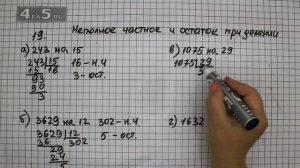 4 на 5.ru
19. Неполное частное и остаток при делении
а) 243 на 15
243 15
15 16 16 - н.ч
93 3 - ост.
90
3
в) 1075 на 29
1075 29
3
б) 3629 на 12 302 - н.ч
3629 12 5 - ост.
36 302
29
24
5
г) 1632